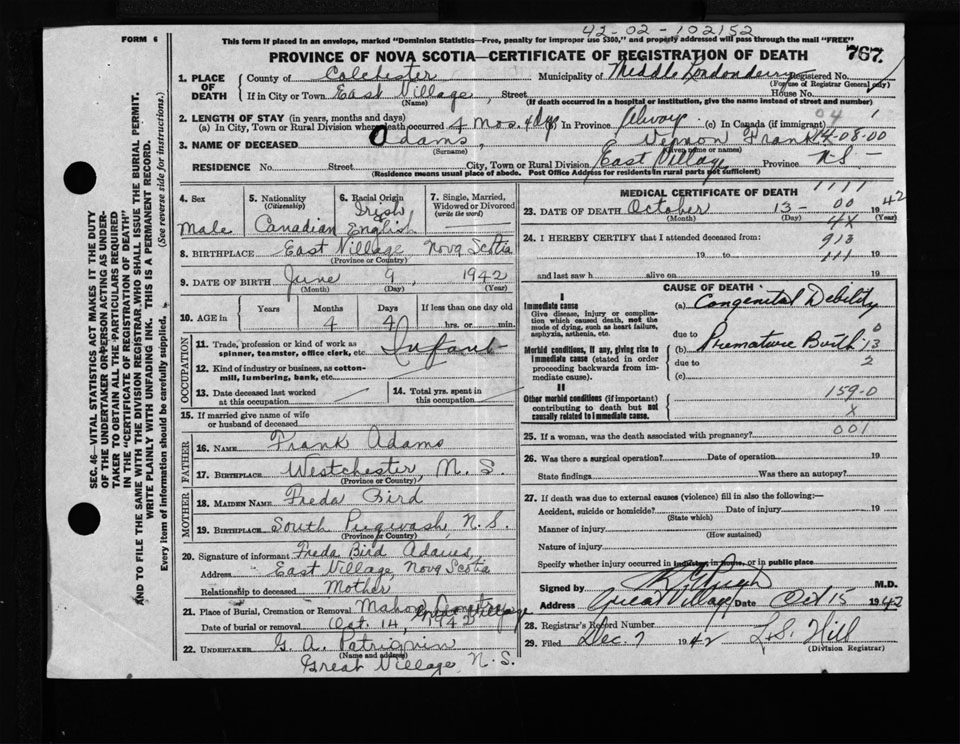 42-02-102152
FORM 6
This form if placed in an envelope, marked "Dominion Statistics—Free, penalty for improper use $300," and properly addressed will pass through the mail "FREE"
PROVINCE OF NOVA SCOTIA—CERTIFICATE OF REGISTRATION OF DEATH
767.
1. PLACE OF DEATH
County of Colchester Municipality of Middle Londonderry Registered No.
(For use of Registrar General only)
If in City or Town East Village, Street House No.
(Name) (If death occurred in a hospital or institution, give the name instead of street and number)
2. LENGTH OF STAY (in years, months and days)
04 1
(a) In City, Town or Rural Division where death occurred 4 Mos. 4 dys In Province Always (c) In Canada (if immigrant)
3. NAME OF DECEASED Adams, Vernon Frank 14-08-00
(Surname) (Given name or names)
RESIDENCE No. Street City, Town or Rural Division East Village Province N.S.—
(Residence means usual place of abode. Post Office Address for residents in rural parts not sufficient)
4. Sex
Male
5. Nationality
(Citizenship)
Canadian
6. Racial Origin
Irish
English
7. Single, Married, Widowed or Divorced
(write the word)
8. BIRTHPLACE East Village Nova Scotia
(Province or Country)
9. DATE OF BIRTH June 9 1942
(Month) (Day) (Year)
10. AGE in Years Months Days If less than one day old
4 4 hrs. or min.
OCCUPATION
11. Trade, profession or kind of work as spinner, teamster, office clerk, etc. Infant
12. Kind of industry or business, as cotton-mill, lumbering, bank, etc.
13. Date deceased last worked at this occupation
14. Total yrs. spent in this occupation
15. If married give name of wife or husband of deceased
FATHER
16. NAME Frank Adams
17. BIRTHPLACE Westchester, N.S.
MOTHER
18. MAIDEN NAME Freda Bird
19. BIRTHPLACE South Pugwash, N.S.
(Province or Country)
20. Signature of informant Freda Bird Adams,
Address East Village, Nova Scotia
Relationship to deceased Mother
21. Place of Burial, Cremation or Removal Great Village
Date of burial or removal Oct. 14, 1942
22. UNDERTAKER G. A. Patriquin
(Name and address)
Great Village N.S.
MEDICAL CERTIFICATE OF DEATH
1111
23. DATE OF DEATH October 13— 00 1942
(Month) (Day) (Year)
4X
24. I HEREBY CERTIFY that I attended deceased from:
913
19 to 111 19
and last saw h alive on 19
CAUSE OF DEATH
I
Immediate cause
Give disease, injury or complication which caused death, not the mode of dying, such as heart failure, asphyxia, asthenia, etc.
(a) Congenital Debility
due to 0
Morbid conditions, if any, giving rise to immediate cause (stated in order proceeding backwards from immediate cause).
(b) Premature Birth 13
due to 2
(c)
II
Other morbid conditions (if important) contributing to death but not causally related to immediate cause.
159-0
X
25. If a woman, was the death associated with pregnancy? 001
26. Was there a surgical operation? Date of operation 19
State findings Was there an autopsy?
27. If death was due to external causes (violence) fill in also the following:—
Accident, suicide or homicide? Date of injury 19
(State which)
Manner of injury
(How sustained)
Nature of injury
Specify whether injury occurred in industry, in home, or in public place
Signed by M.D.
Address Great Village Date Oct 15 1942
28. Registrar's Record Number
29. Filed Dec. 7 1942 L.S. Hill
(Division Registrar)
SEC. 46—VITAL STATISTICS ACT MAKES IT THE DUTY
OF THE UNDERTAKER OR PERSON ACTING AS UNDER-
TAKER TO OBTAIN ALL THE PARTICULARS REQUIRED
IN THE "CERTIFICATE OF REGISTRATION OF DEATH"
AND TO FILE THE SAME WITH THE DIVISION REGISTRAR WHO SHALL ISSUE THE BURIAL PERMIT.
WRITE PLAINLY WITH UNFADING INK. THIS IS A PERMANENT RECORD.
Every item of information should be carefully supplied. (See reverse side for instructions.)